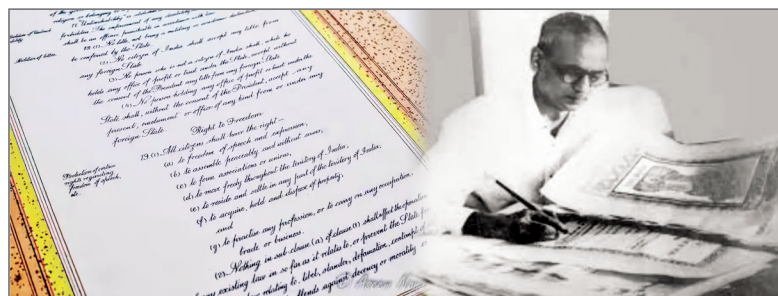 of the
citizen or belonging to
17. "Untouchability" is abolished
forbidden. The enforcement of any disability
shall be an offence punishable in accordance with law.
18. (1) No title, not being a military or academic distinction,
Abolition of titles.
to be conferred by the State.
(2) No citizen of India shall accept any title from
any foreign State.
(3) No person who is not a citizen of India shall, while he
holds any office of profit or trust under the State, accept without
the consent of the President any title from any foreign State.
(4) No person holding any office of profit or trust under the
State shall, without the consent of the President, accept any
present, emolument, or office of any kind from or under any
foreign State.
Right to Freedom
19. (1) All citizens shall have the right –
Protection of certain
rights regarding
freedom of speech,
etc.
(a) to freedom of speech and expression;
(b) to assemble peaceably and without arms;
(c) to form associations or unions;
(d) to move freely throughout the territory of India;
(e) to reside and settle in any part of the territory of India;
(f) to acquire, hold and dispose of property;
and
(g) to practise any profession, or to carry on any occupation,
trade or business.
(2) Nothing in sub-clause (a) of clause (1) shall affect the operation
any existing law in so far as it relates to, or prevent the State
relating to, libel, slander, defamation, contempt
offends against decency or morality